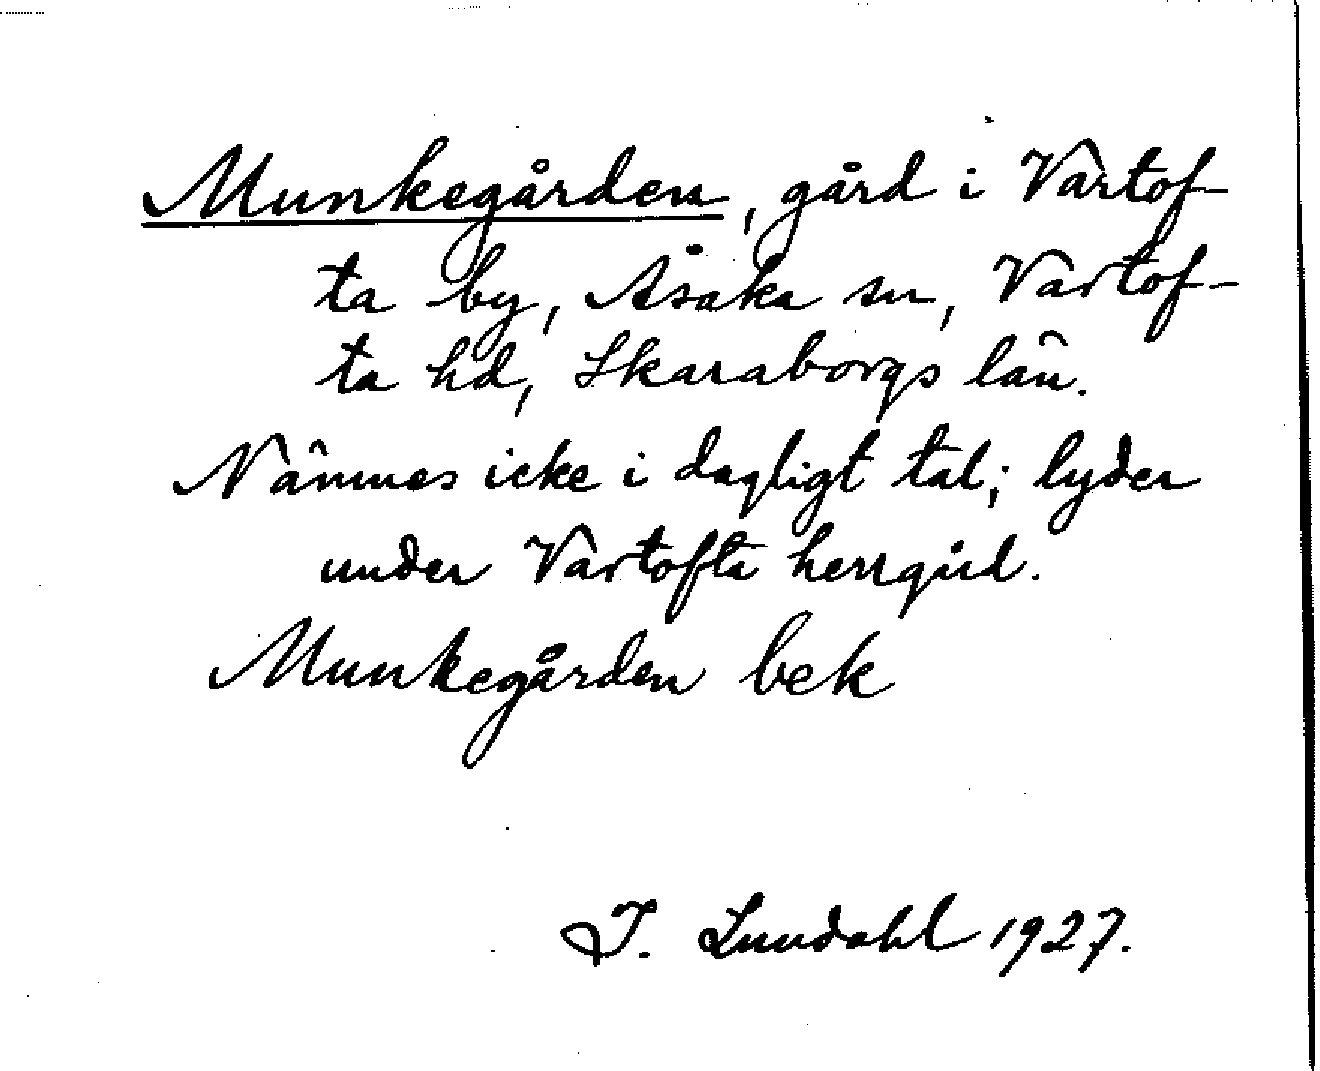 Munkegården, gård i Vartof-
ta by, Åsaka sn, Vartof-
ta hd, Skaraborgs län.
Nämnes icke i dagligt tal; lyder
under Vartofta herrgård.
Munkegården bek
I. Lundahl 1927.